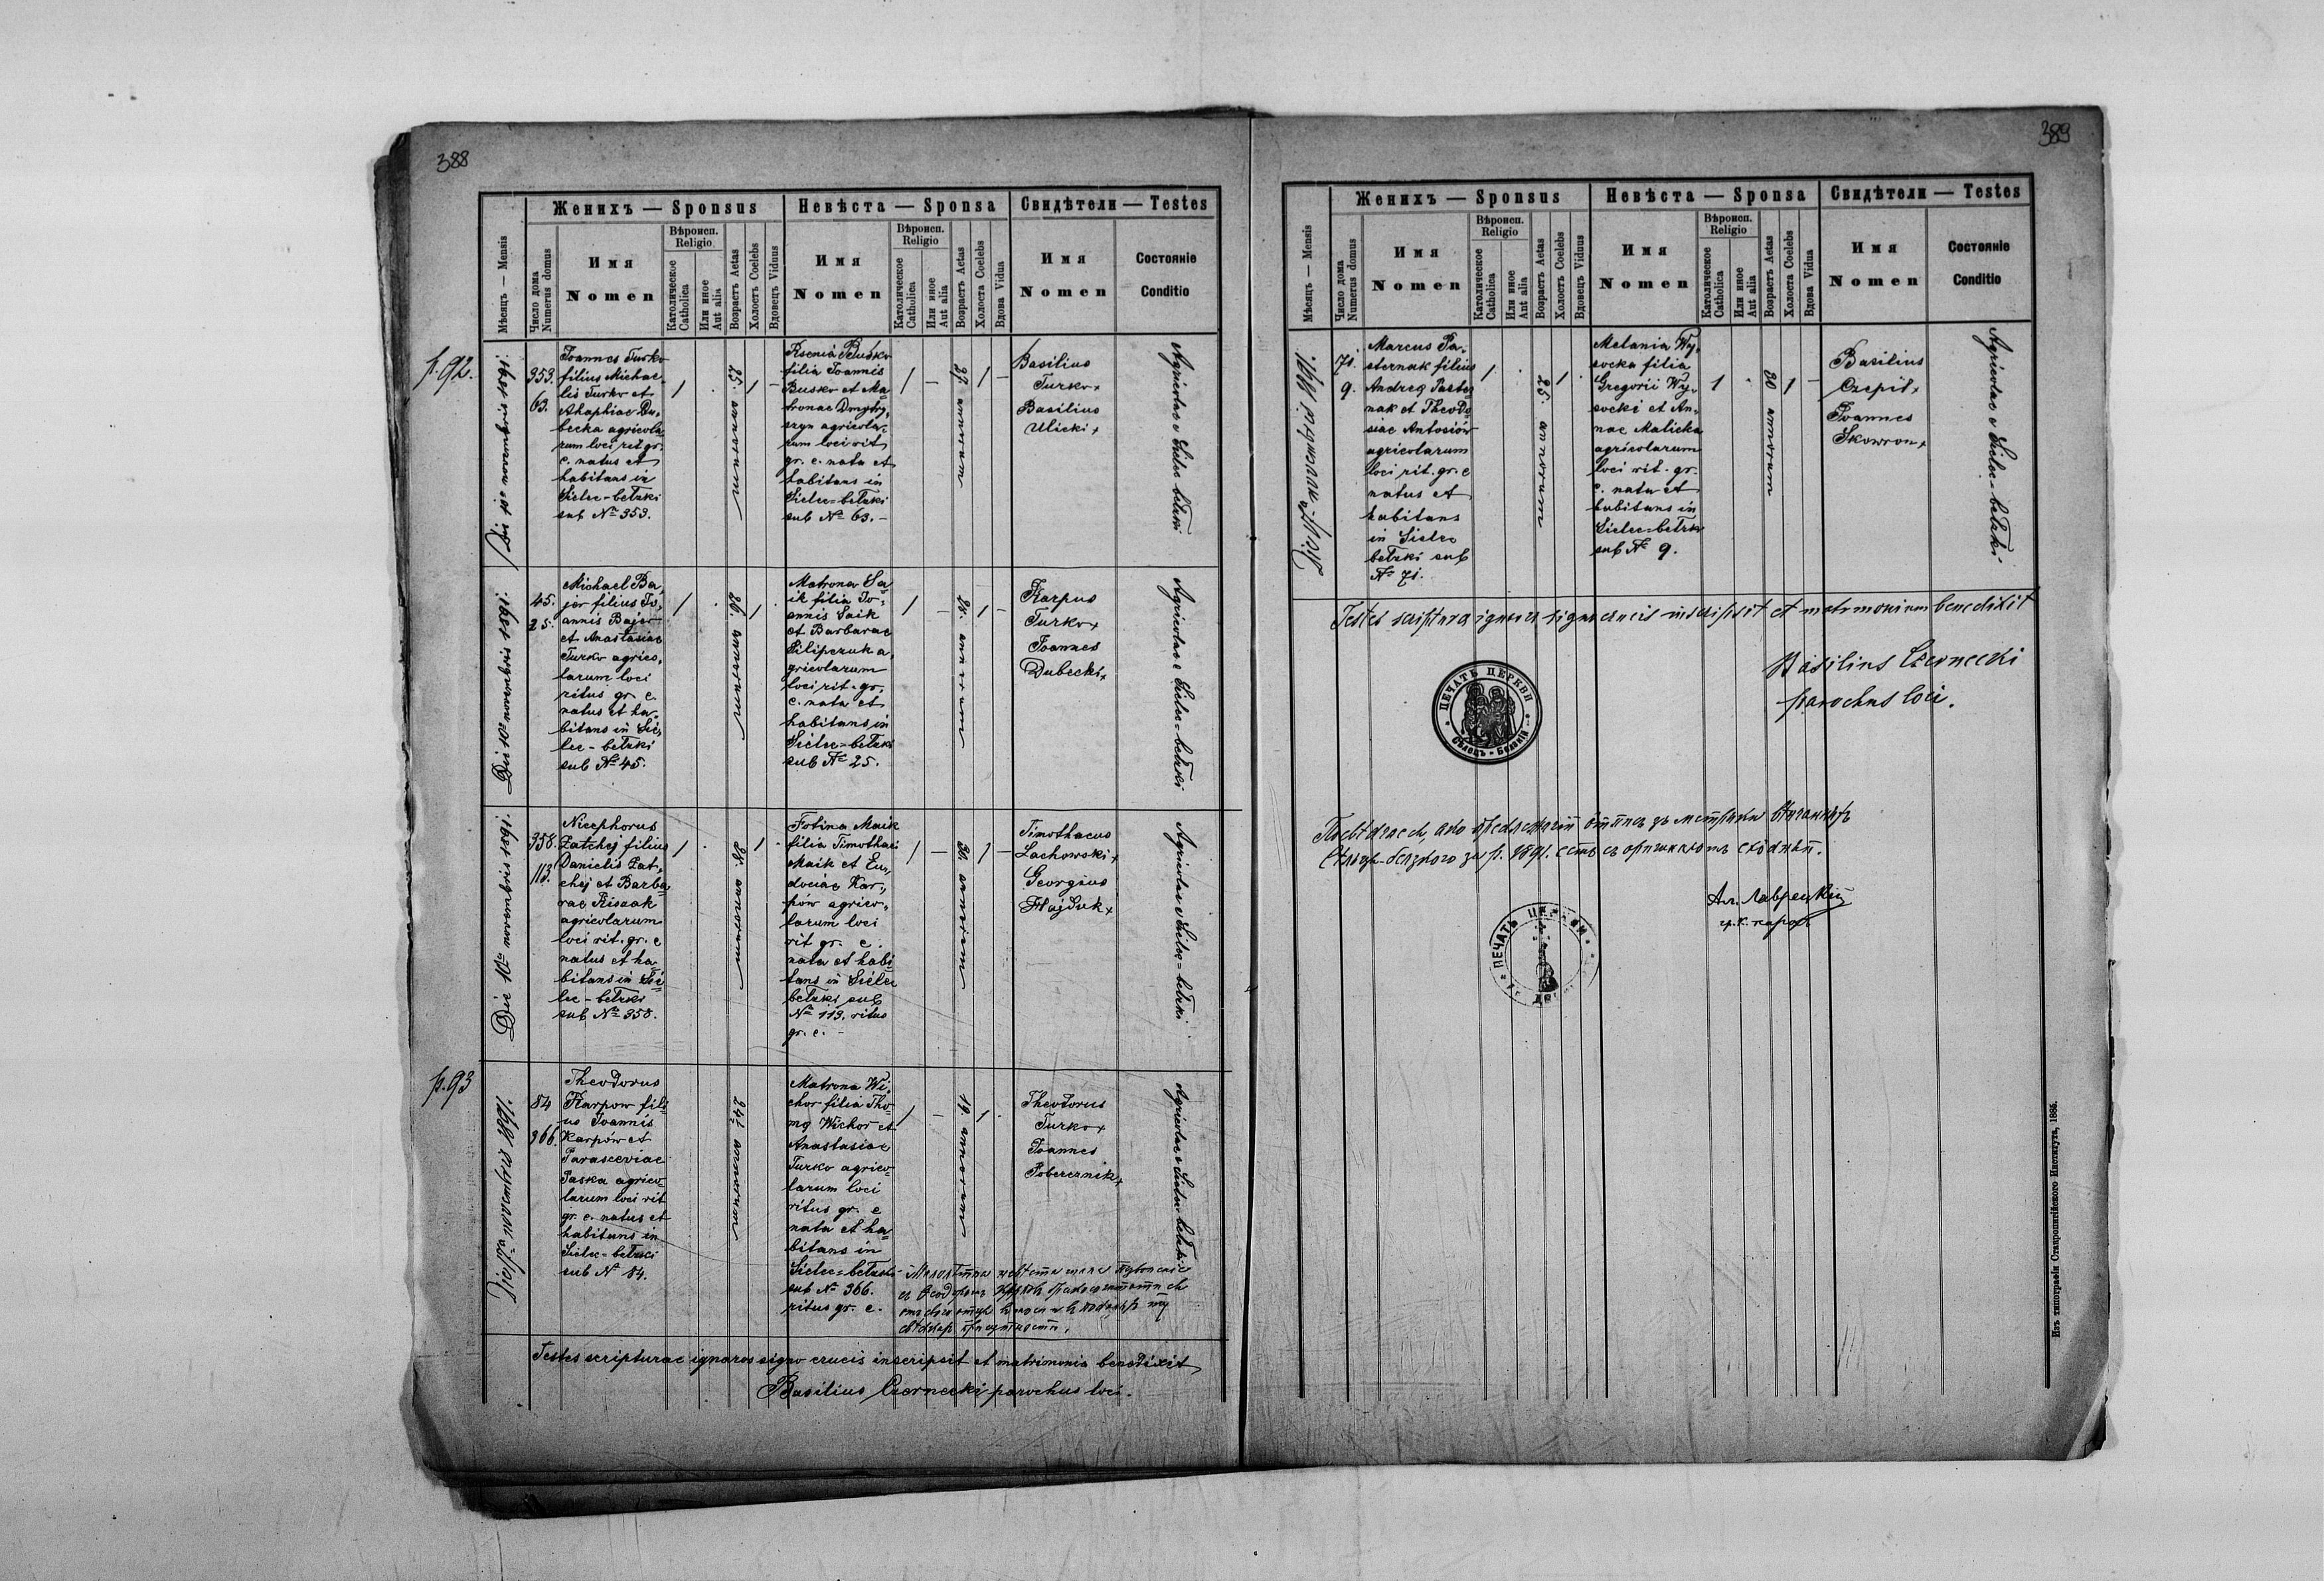 388
Женихъ — Sponsus
Невѣста — Sponsa
Свидѣтели — Testes
Мѣсяцъ — Mensis
Число дома
Numerus domus
Имя
Nomen
Вѣроисп.
Religio
Католическое
Catholica
Или иное
Aut alia
Возрастъ Aetas
Холостъ Coelebs
Вдовецъ Viduus
Имя
Nomen
Вѣроисп.
Religio
Католическое
Catholica
Или иное
Aut alia
Возрастъ Aetas
Холоста Coelebs
Вдова Vidua
Имя
Nomen
Состояніе
Conditio
p. 92.
Die 10a novembris 1891.
353.
63.
Joannes Turko
filius Michae-
lis Turko et
Ahaphiae Du-
becka agricola-
rum loci rit gr.
c. natus et
habitans in
Sielec-bełzki
sub No 353.
1
25. annorum
1
Ksenia Busko
filia Joannis
Busko et Ma-
tronae Dmytry-
szyn agricola-
rum loci rit
gr. c. nata et
habitans in
Sielec-bełzki
sub No 63. -
1
22. annorum
1
Basilius
Turko +
Basilius
Ulicki +
Agricolae e Sielec bełzki
Die 10a novembris 1891.
45.
25.
Michael Ba-
jor filius Jo-
annis Bajor
et Anastasiae
Turko agrico-
larum loci
ritus gr. c.
natus et ha-
bitans in Sie-
lec - bełzki
sub No 45.
1
26. annorum
1
Matrona Sa-
ik filia Jo-
annis Saik
et Barbarae
Pilipczuk a-
gricolarum
loci rit. gr.
c. nata et
habitans in
Sielec=bełzki
sub No 25.
1
24. annorum
1
Karpus
Turko +
Joannes
Dubecki +
Agricolae e Sielec-bełzki
Die 10a novembris 1891.
358.
113.
Nicephorus
Zatchej filius
Danielis Zat-
chej et Barba-
rae Risaak
agricolarum
loci rit. gr. c
natus et ha-
bitans in Sie-
lec - bełzki
sub No 358.
1
24. annorum
1
Fotina Maik
filia Timothaei
Maik et Eu-
dociae Kar-
pow agrico-
larum loci
rit gr. c.
nata et habi-
tans in Sielec
bełzki sub
No 113. ritus
gr. c. -
1
20. annorum
1
Timothaeus
Lachowski +
Georgius
Hajduk +
Agricolae e Sielec=bełzki
p. 93
Die novembris 1891.
84
366.
Theodorus
Karpow fili-
us Joannis
Karpow et
Parasceviae
Paska agrico-
larum loci rit
gr. c. natus et
habitans in
Sielec=bełzki
sub No 84.
24 annorum
Matrona Wi-
chor filia Tho-
ma Wichor et
Anastasiae
Turko agrico-
larum loci
ritus gr. c
nata et ha-
bitans in
Sielec=bełzki
sub No 366.
ritus gr. c.
1
19. annorum
1
Theodorus
Turko +
Joannes
Pobereznik +
Agricolae e Sielec bełzki
Testes scripturae ignaros signo crucis inscripsit et matrimonia benedixit
Basilius Czernecki parochus loci.
389
Женихъ — Sponsus
Невѣста — Sponsa
Свидѣтели — Testes
Мѣсяцъ — Mensis
Число дома
Numerus domus
Имя
Nomen
Вѣроисп.
Religio
Католическое
Catholica
Или иное
Aut alia
Возрастъ Aetas
Холостъ Coelebs
Вдовецъ Viduus
Имя
Nomen
Вѣроисп.
Religio
Католическое
Catholica
Или иное
Aut alia
Возрастъ Aetas
Холоста Coelebs
Вдова Vidua
Имя
Nomen
Состояніе
Conditio
Die novembris 1891.
71.
9.
Marcus Pa-
sternak filius
Andrea Paster-
nak et Theodo-
siae Antosiów
agricolarum
loci rit. gr. c
natus et
habitans
in Sielec
bełzki sub
No 71.
1
25. annorum
1
Melania Wy-
socka filia
Gregorii Wy-
socki et An-
nae Malicka
agricolarum
loci rit. gr.
c. nata et
habitans in
Sielec=bełzki
sub No 9.
1
20 annorum
1
Basilius
Czepit +
Joannes
Skowron +
Agricolae e Sielec-bełzki
Testes scriptura ignaros signo crucis inscripsit et matrimonium benedixit
Basilius Czernecki
parochus loci.
ПЕЧАТЬ ЦЕРКВИ
Сѣлецъ - Белзкій
за р. 1891. есть съ оригиналомъ сходный.
Ал. Лаврецкій
ПЕЧАТЬ
Изъ типографіи Ставропигійского Института, 1885.